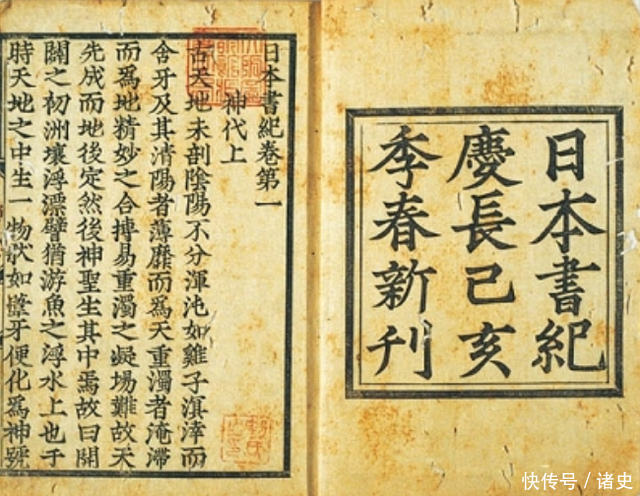 日本書紀
慶長己亥
季春新刊
日本書紀卷第一
神代上
古天地未剖陰陽不分渾沌如雞子溟涬而
含牙及其清陽者薄靡而爲天重濁者淹滯
而爲地精妙之合搏易重濁之凝場難故天
先成而地後定然後神聖生其中焉故曰開
闢之初洲壤浮漂譬猶游魚之浮水上也于
時天地之中生一物状如葦牙便化爲神號
快传号 / 诸史